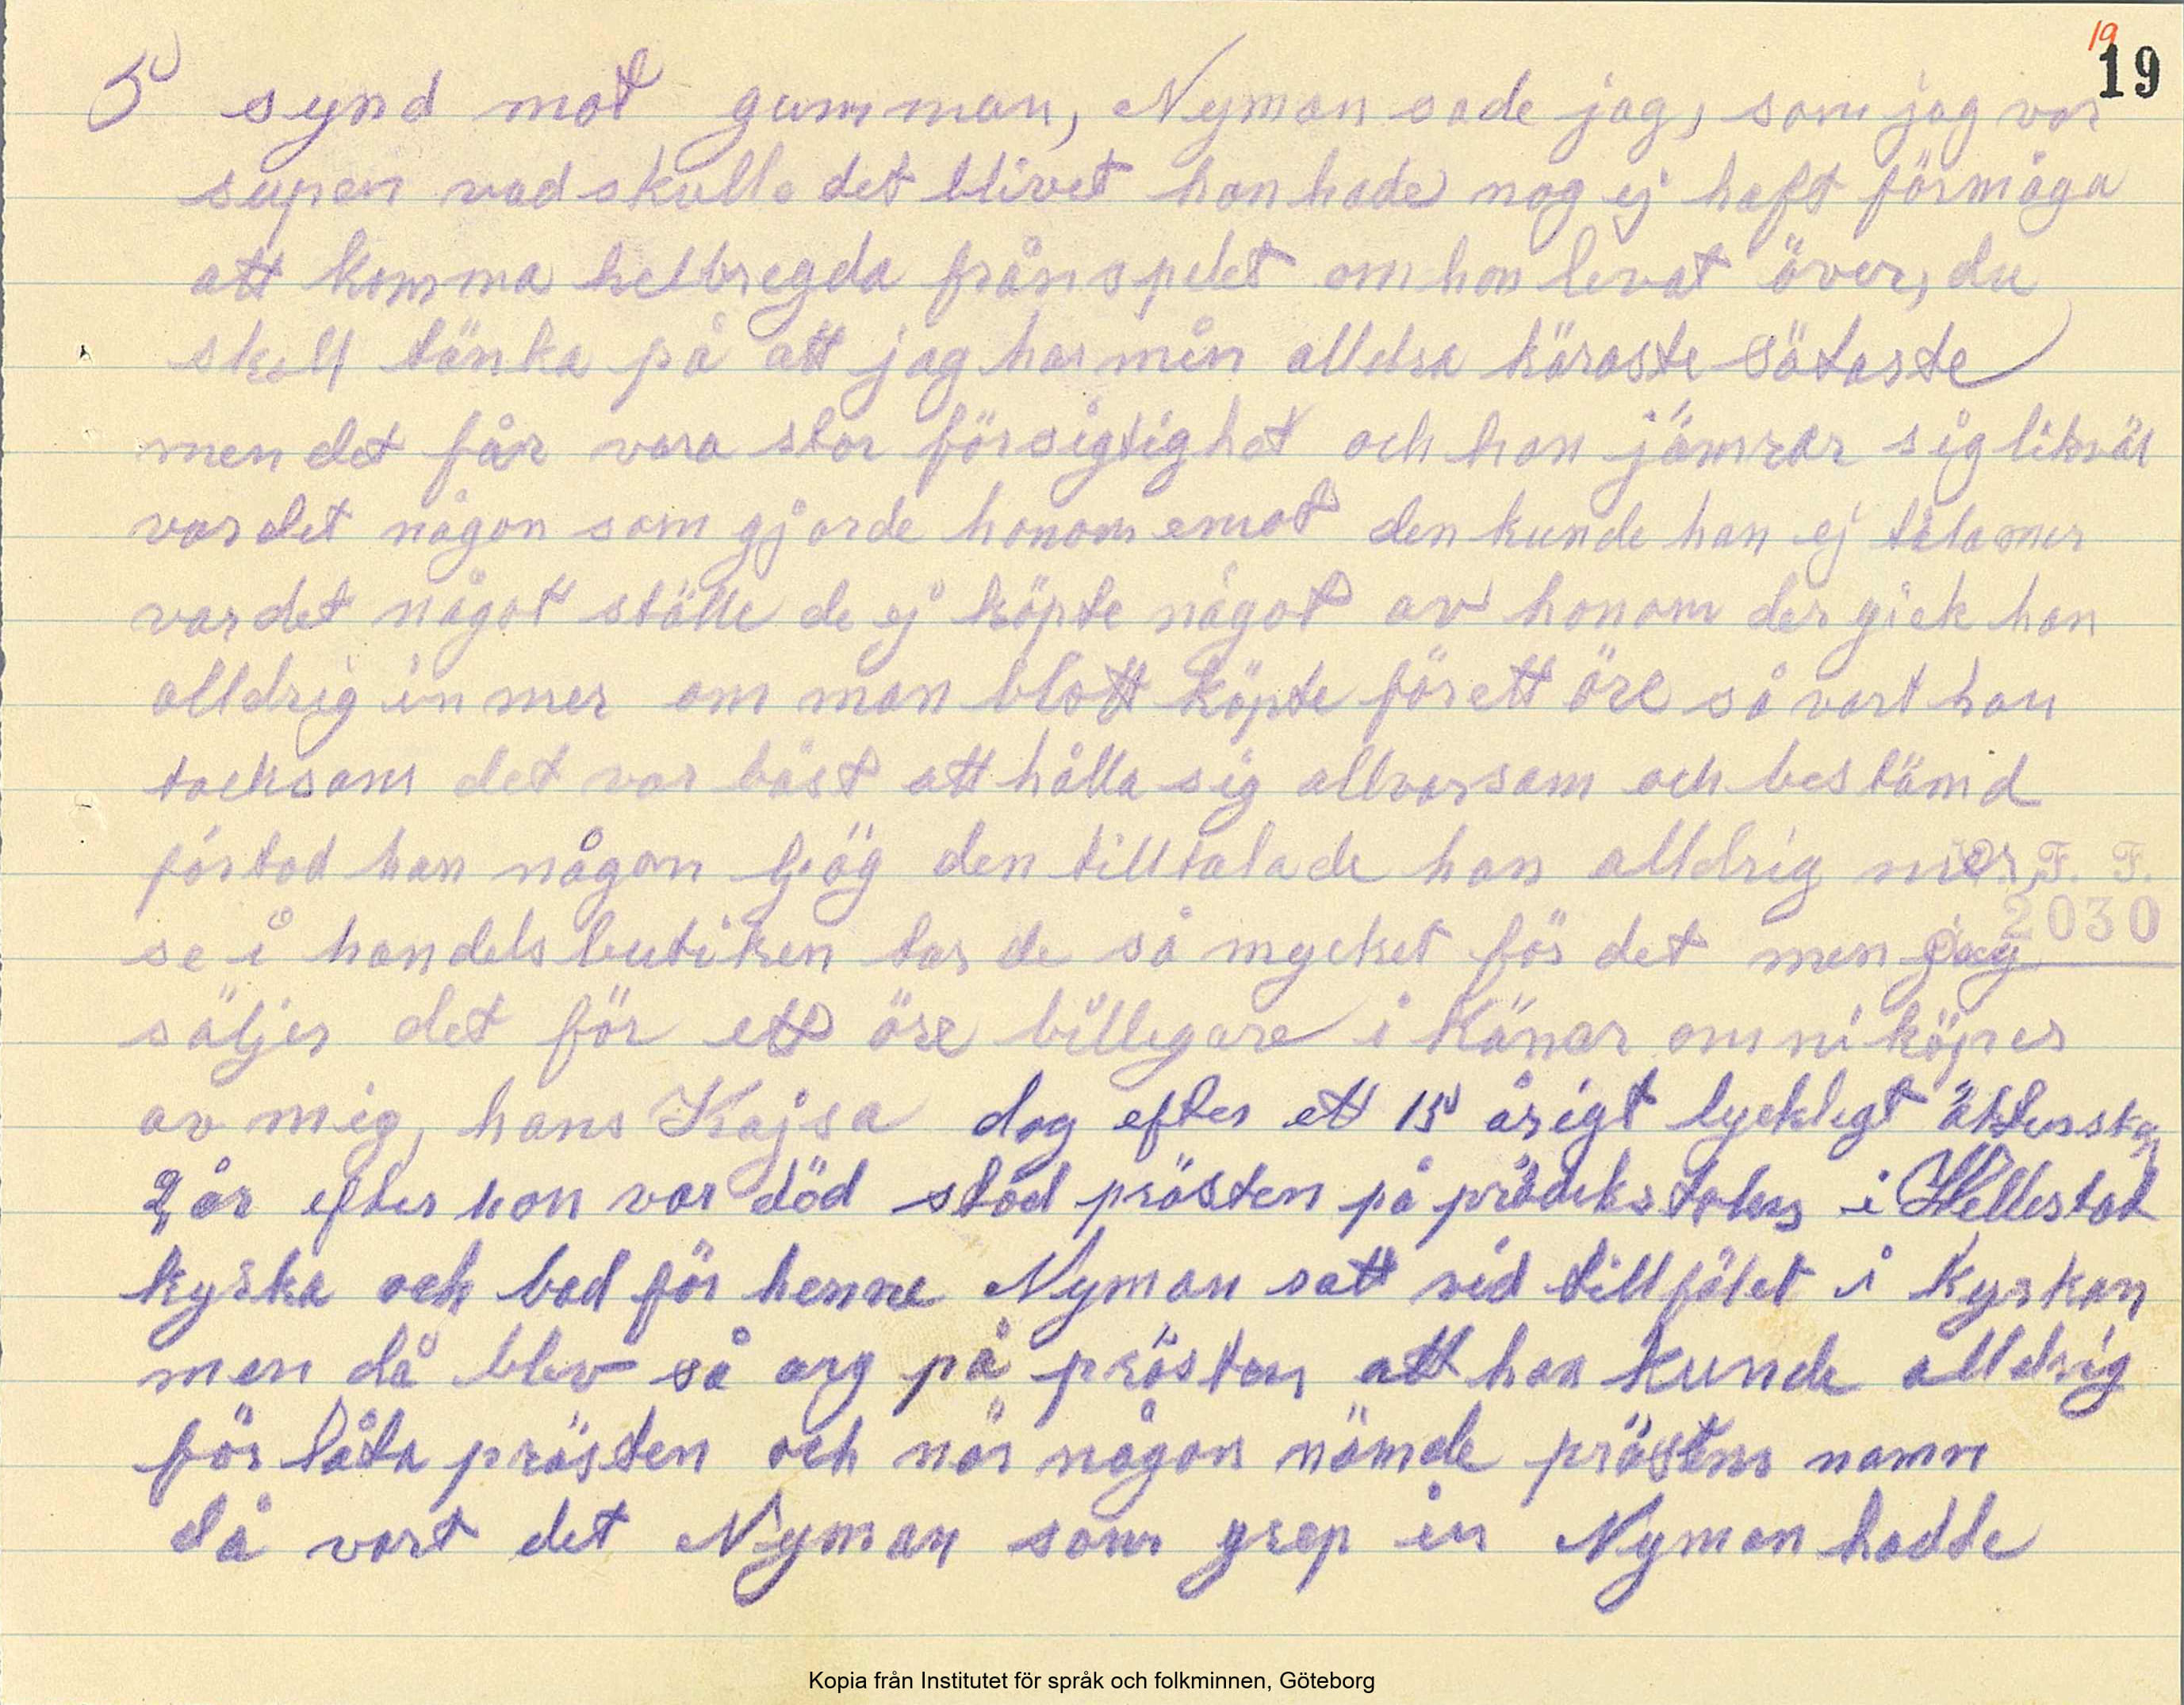 19
19
5 synd mot gumman, Nyman sade jag, som jag var
supen vad skulle det blivet han hade nog ej haft förmåga
att komma helbregda från spelet om hon levat över, du
skall tänka på att jag har min alldra käraste sötaste
men det får vara stor försigtighet och han jämrar sig likväl
var det någon som gjorde honom emot den kunde han ej tåla mer
var det något ställe de ej köpte något av honom der gick han
alldrig in mer om man blott köpte för ett öre så vart han
tacksam det var bäst att hålla sig allvarsam och bestämd
förstod han någon ljög den tilltalade han alldrig mer,
F. F.
2030
se i handelsbutiken tar de så mycket för det men jag
säljer det för ett öre billigare i Känar om ni köper
av mig, hans Kajsa dog efter ett 15 årigt lyckligt äktenska
2 år efter hon var död stod prästen på prädikstolen i Hellestat
kyrka och bad för henne Nyman satt vid tillfälet i kyrkan
men då blev så arg på prästen att han kunde alldrig
för låta prästen och när någon nämde prästens namn
då vart det Nyman som grep in Nyman hadde
Kopia från Institutet för språk och folkminnen, Göteborg